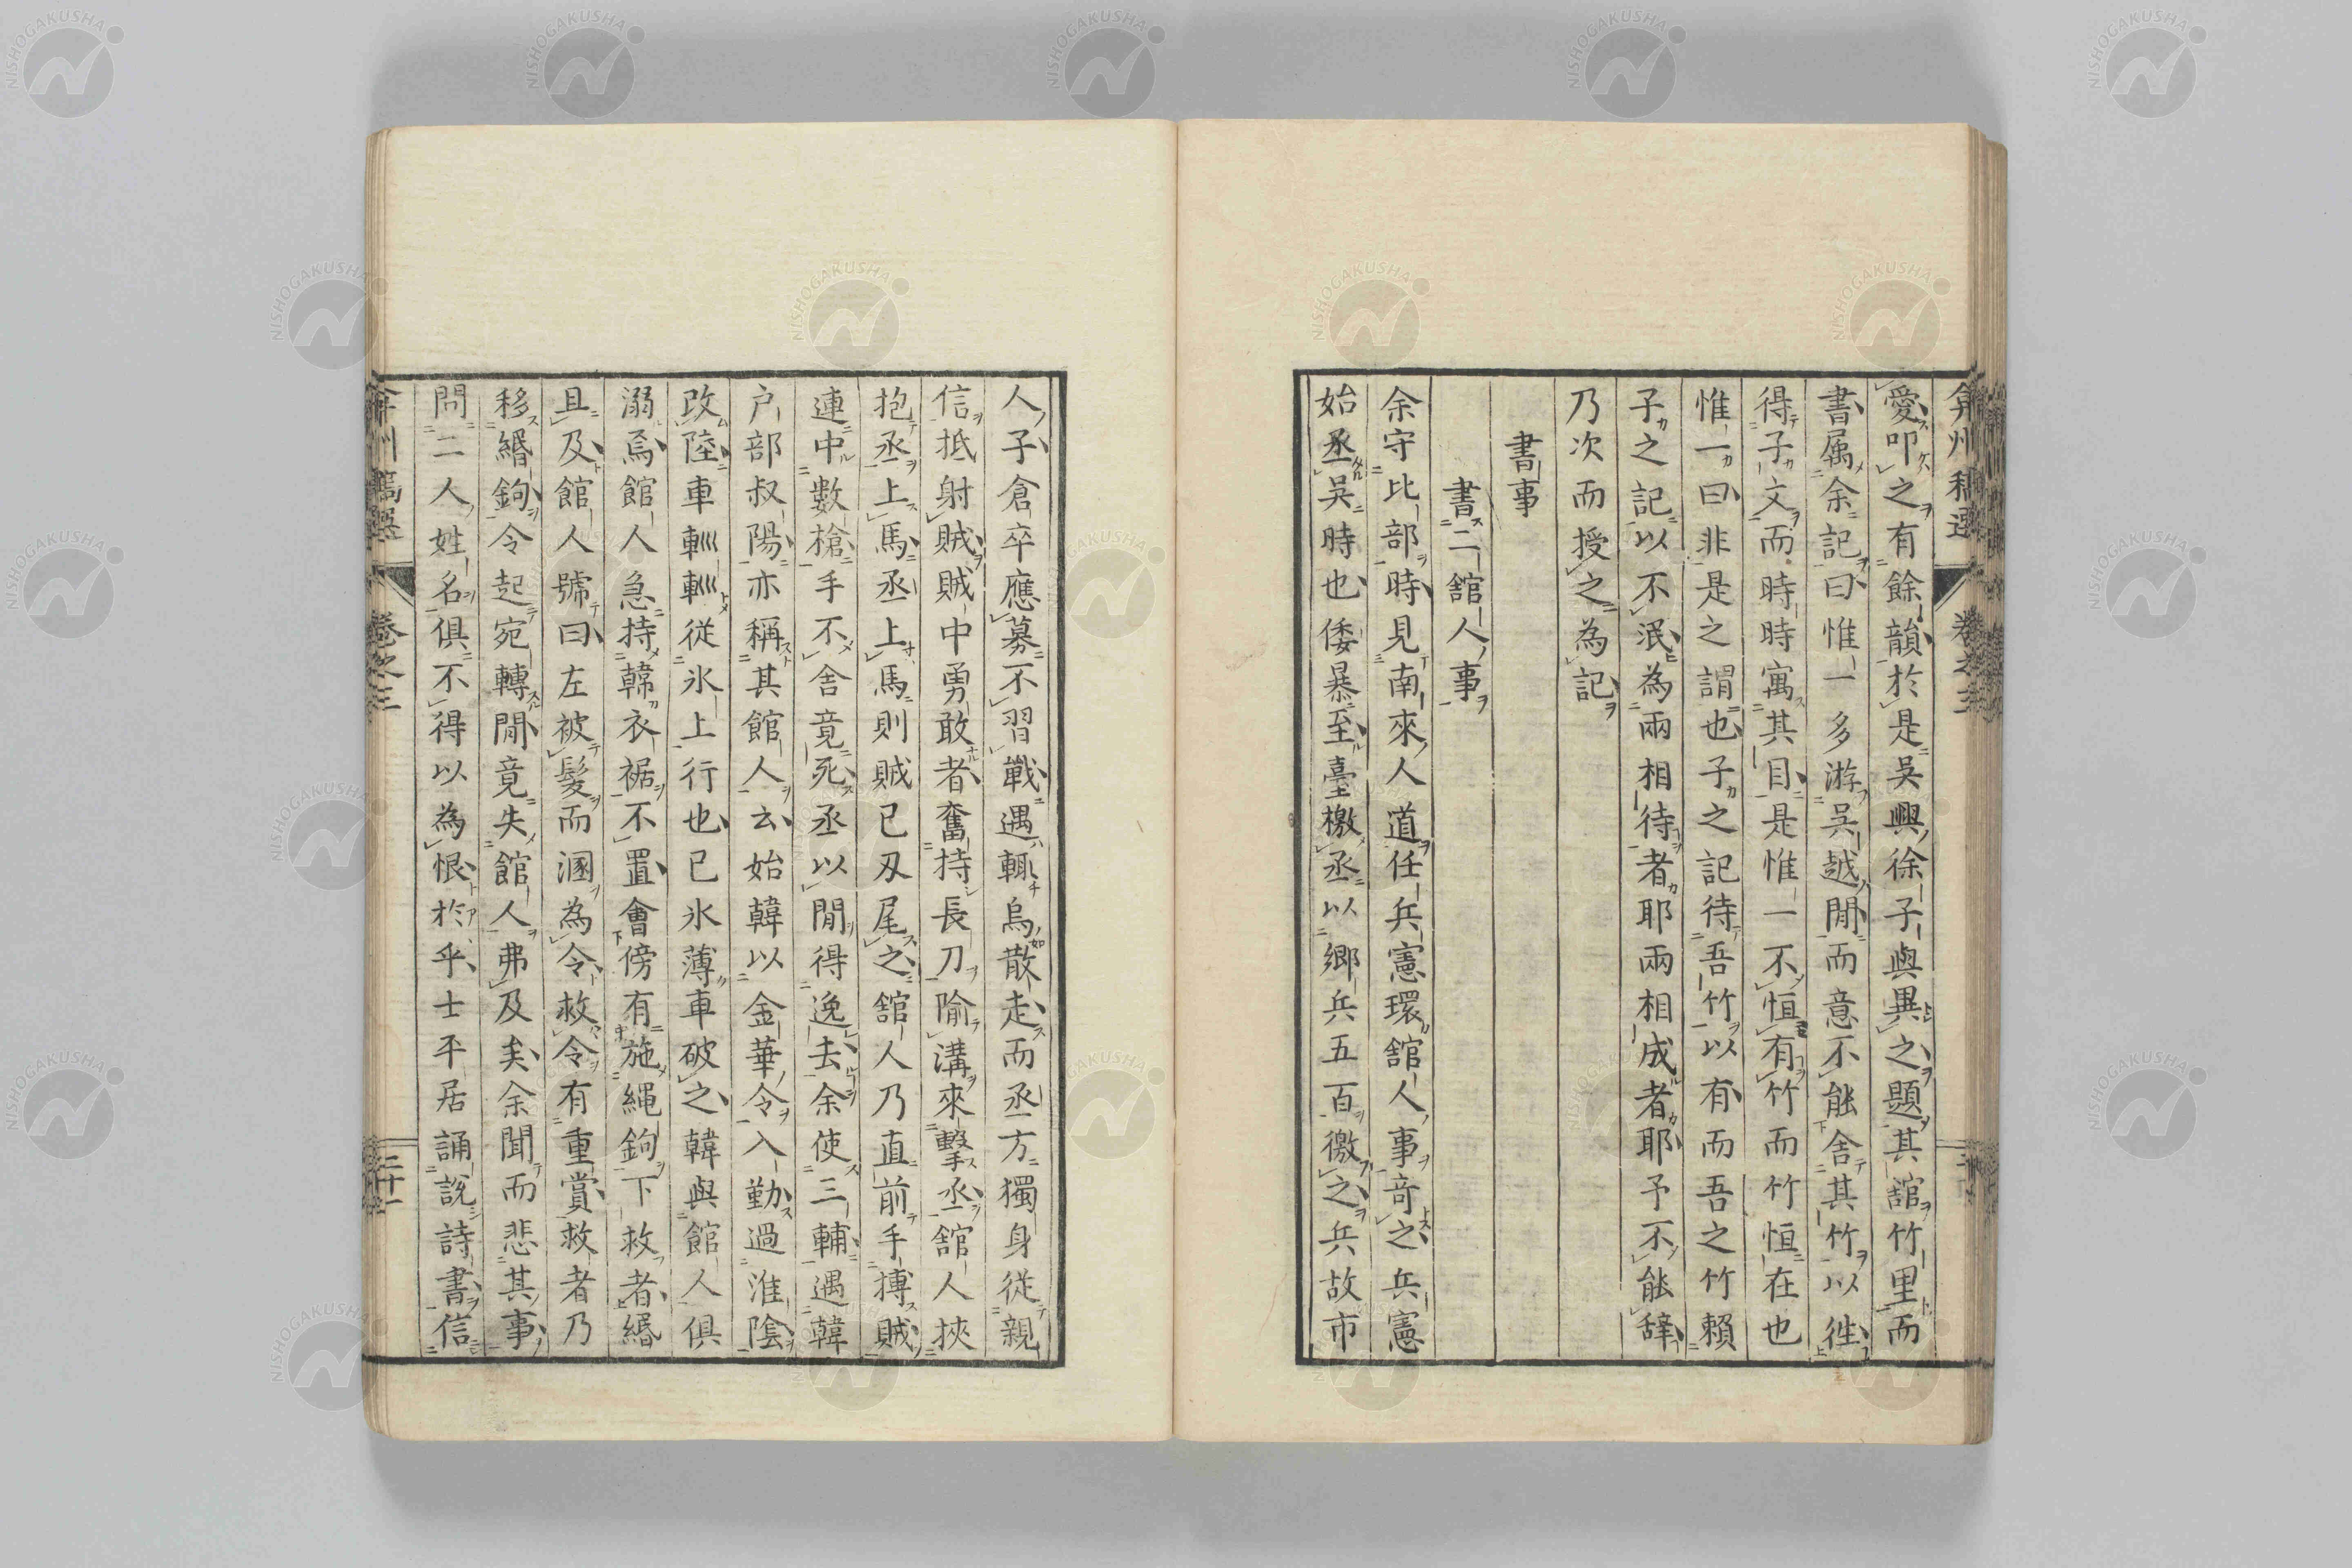 弇州稿選 卷之三
愛叩之有餘韻於是吳興徐子與異之題其館竹里而
書属余記曰惟一多游吳越間而意不能舍其竹以徃
得子文而時時寓其目是惟一不恒有竹而竹恒在也
惟一曰非是之謂也子之記待吾竹以有而吾之竹賴
子之記以不泯為兩相待者耶兩相成者耶予不能辞
乃次而授之為記
書事
書二舘人事
余守比部時見南來人道任兵憲環舘人事奇之兵憲
始丞吳時也倭暴至臺檄丞以鄉兵五百徼之兵故市
人子倉卒應募不習戰遇輒烏散走而丞方獨身從親
信抵射賊賊中勇敢者奮持長刀隃溝來擊丞舘人挾
抱丞上馬丞上馬則賊已刄尾之舘人乃直前手搏賊
連中數槍手不舍竟死丞以間得逸去余使三輔遇韓
户部叔陽亦稱其館人云始韓以金華令入勤過淮陰
改陸車轔轔從氷上行也已氷薄車破之韓與館人俱
溺焉館人急持韓衣裾不置會傍有施繩鉤下救者緡
且及館人號曰左被髮而溷為令救令有重賞救者乃
移緡鉤令起宛轉間竟失館人弗及矣余聞而悲其事
問二人姓名俱不得以為恨於乎士平居誦說詩書信
弇州稿選 卷之三 三十一
NISHOGAKUSHA